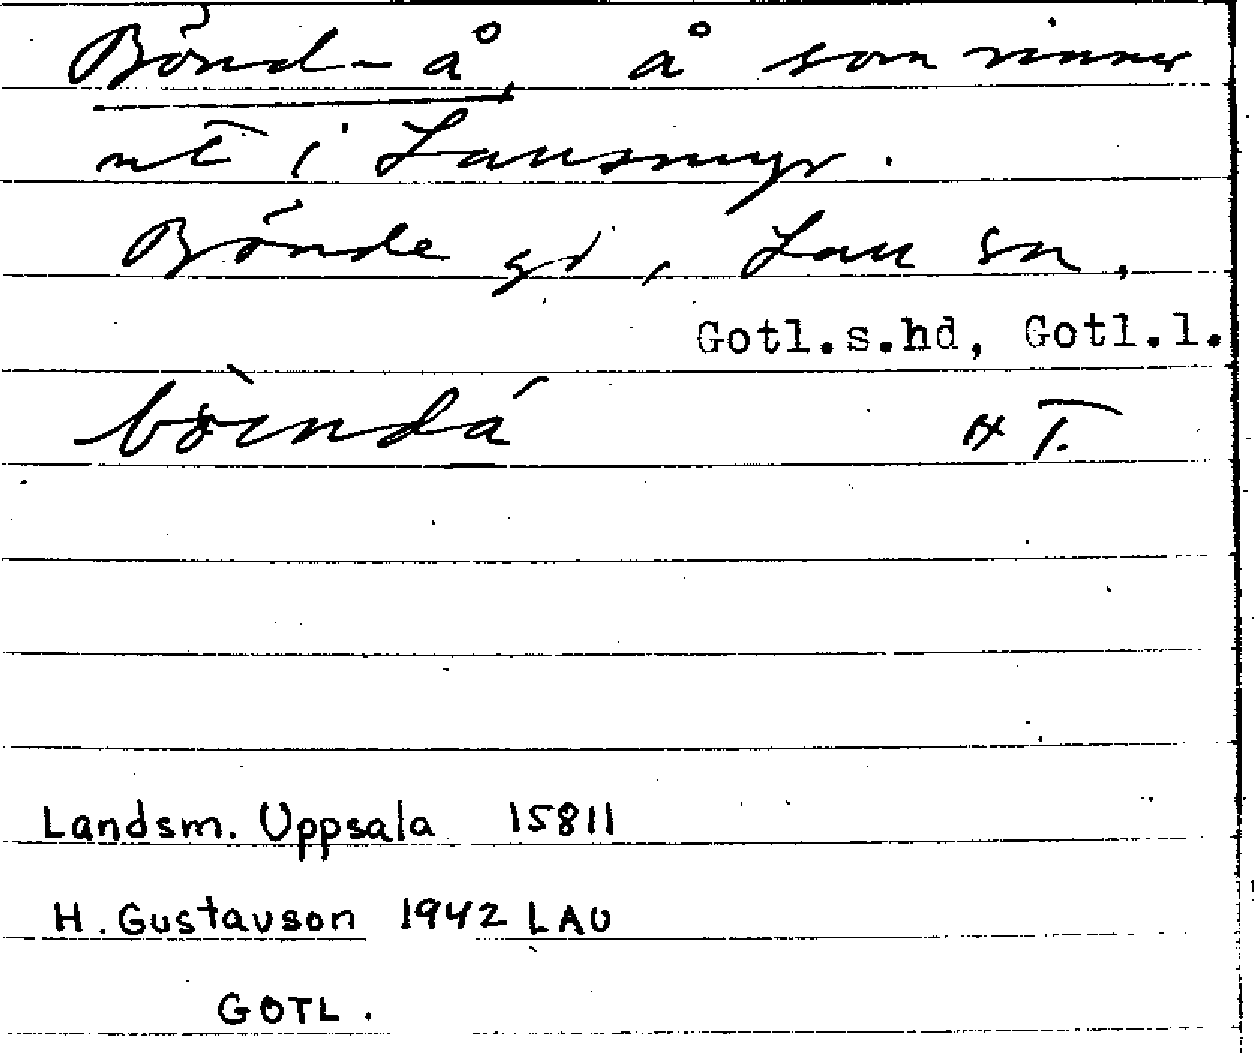 Bönd-å, å som rinner
ut i Lausmyr.
Bönde gd, Lau sn,
Gotl.s.hd, Gotl.l.
bö̀indá
Landsm. Uppsala 15811
H. Gustavson 1942 LAU
GOTL.